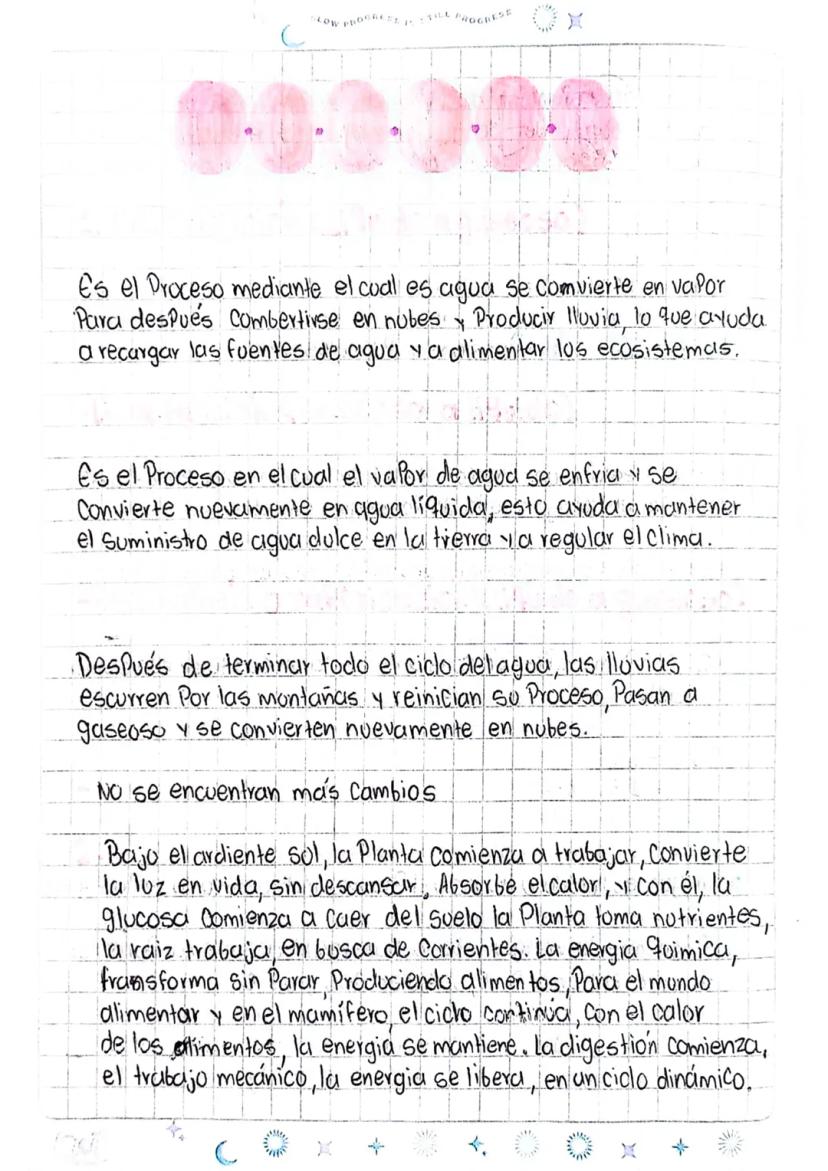 SLOW PROGRESS IS STILL PROGRESS
Es el Proceso mediante el cual es agua se comvierte en vapor
Para después Combertirse en nubes y Producir lluvia, lo que ayuda
a recargar las fuentes de agua y a alimentar los ecosistemas.
Es el Proceso en el cual el vapor de agua se enfria y se
Convierte nuevamente en agua líquida, esto ayuda a mantener
el Suministro de agua dulce en la tierra y a regular el clima.
Después de terminar todo el ciclo del agua, las lluvias
escurren Por las montañas y reinician su Proceso, Pasan a
gaseoso y se convierten nuevamente en nubes.
No se encuentran más Cambios
Bajo el ardiente sol, la Planta comienza a trabajar, Convierte
la luz en vida, sin descansar, Absorbe el calor, y con él, la
glucosa Comienza a caer del suelo la Planta toma nutrientes,
la raiz trabaja, en busca de Corrientes. La energia Quimica,
transforma sin Parar, Produciendo alimentos, Para el mundo
alimentar y en el mamífero, el ciclo continúa, Con el calor
de los alimentos, la energía se mantiene. La digestión comienza,
el trabajo mecánico, la energia se libera, en un ciclo dinámico.